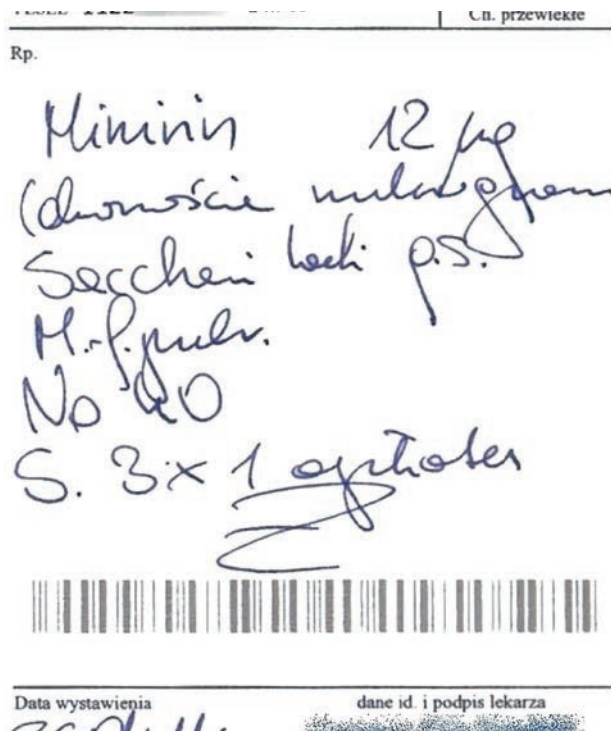 Ch. przewlekłe
Rp.
Minirin 12 µg
(dwanaście mikrogram
Sacchari lacti q.s.
M.f. pulv.
No 40
S. 3x1 opłatek
Data wystawienia dane id. i podpis lekarza